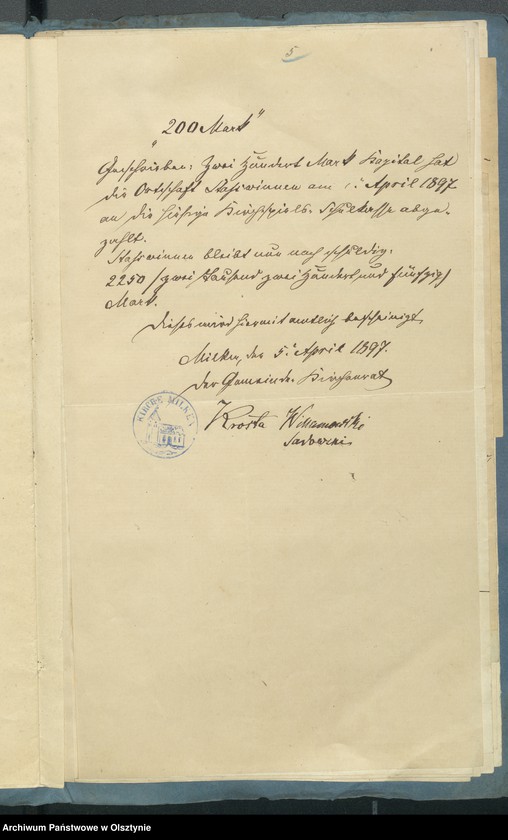 5
„200 Mark“
Geschrieben: Zwei Hundert Mark Kapital hat
die Ortschaft Staswinnen am 1. April 1897
an die hiesige Kirchspiels-Schulkasse abge-
zahlt.
Staswinnen bleibt nun noch schuldig:
2250 (zwei Tausend zwei Hundert und fünfzig)
Mark.
Dieses wird hiermit amtlich bescheinigt
Milken, den 5. April 1897.
Der Gemeinde-Kirchenrat
KIRCHE MILKEN
Krosta Willamowski
Sadowski
Archiwum Państwowe w Olsztynie